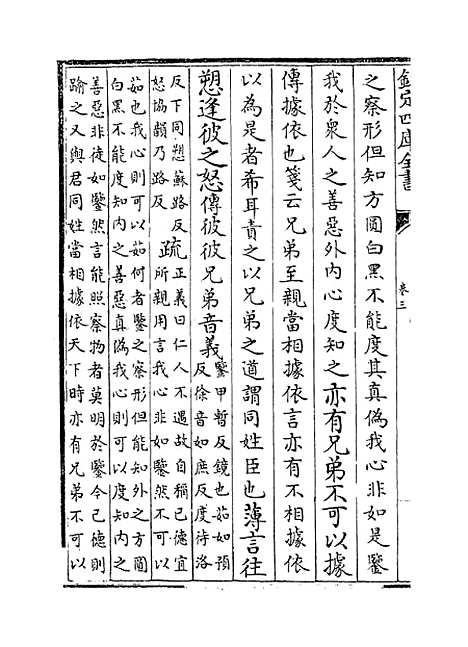 欽定四庫全書
卷三
之察形但知方圓白黑不能度其真偽我心非如是鑒
我於衆人之善惡外内心度知之亦有兄弟不可以據
傳據依也箋云兄弟至親當相據依言亦有不相據依
以為是者希耳責之以兄弟之道謂同姓臣也薄言往
愬逢彼之怒傳彼彼兄弟音義
鑒甲暫反鏡也茹如預
反徐音如庶反度待洛
反下同愬蘇路反
怒恊韻乃路反
疏
正義曰仁人不遇故自稱已德宜
所親用言我心非如鑒然不可以
茹也我心則可以茹何者鑒之察形但能知外之方圓
白黑不能度知内之善惡真偽我心則可以度知内之
善惡非徒如鑒然言能照察物者莫明於鑒今已德則
踰之又與君同姓當相據依天下時亦有兄弟不可以